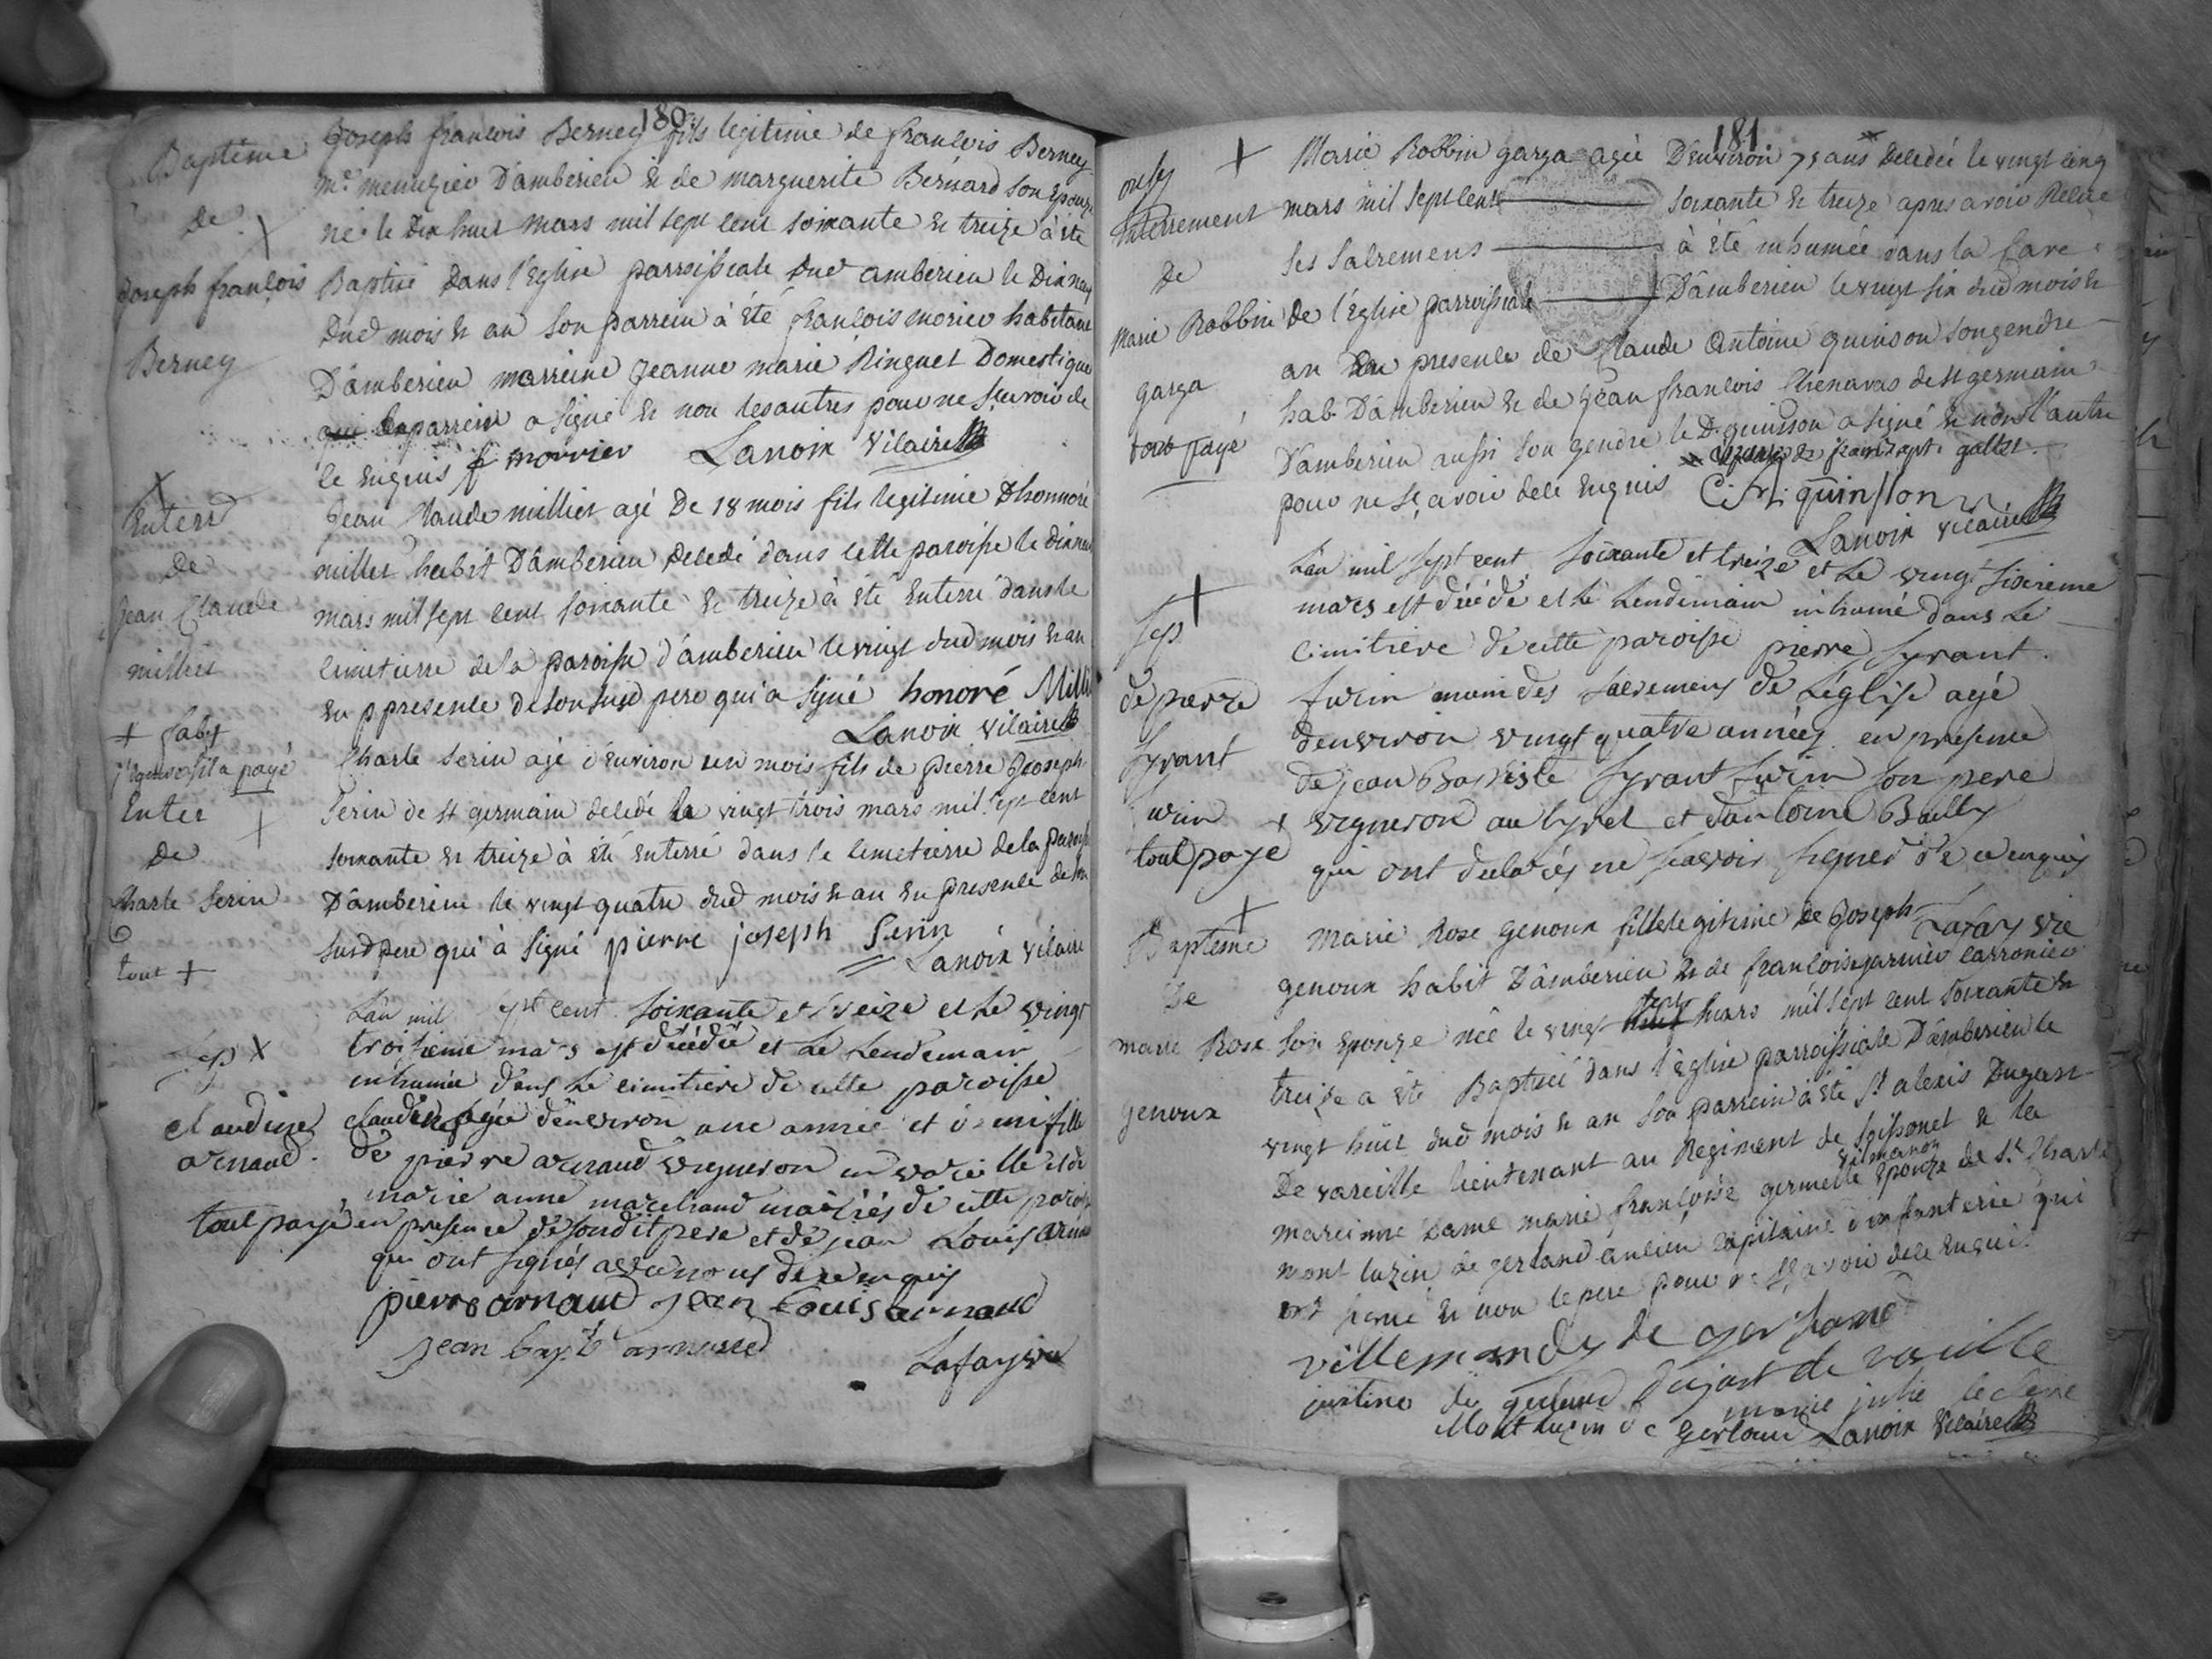 180.
Baptême
de
Joseph françois
Berney
Joseph francois Berney fils legitime de francois Berney
me. menuizier D'amberieu & de marguerite Bernard son Epouze
né le Dix huit mars mil sept cent soixante & treize à été
Baptisé Dans l'Eglise parroissiale Dud amberieu le Dix neuf
Dud mois & an son parrein à été francois morier habitant
D'amberieu marreine Jeanne marie Ringuet Domestique
qui le parrein a signé & non les autres pour ne sçavoir de
ce Enquis f morrier Lanoix Vicaire
Enterr
de
Jean Claude
milliet
Jean Claude milliet agé De 18 mois fils legitime D'honnoré
milliet habit D'amberieu decedé dans cette paroisse le dix neuf
mars mil sept cent soixante & treize à été Enterré dans le
cimetierre de la paroisse d'amberieu le vingt dud mois & an
En ppresence de son susd pere qui a signé honoré Milli
Lanoix vicaire
a payé
Enter
de
Charle Serin
tout +
Charle Serin agé d'environ un mois fils de pierre Joseph
Serin de st germain decedé le vingt trois mars mil sept cent
soixante & treize à été Enterré dans le cimetierre de la paroisse
D'amberieu le vingt quatre dud mois & an En presence de son
susd pere qui à signé pierre joseph Serin
Lanoix vicaire
Sep X
claudine
arnaud.
tout payé
L'an mil sept cent soixante et treize et le vingt
troisieme mars est décédée et le lendemain
inhumée dans le cimitiere de cette paroisse
claudine agée d'environ une année et demi fille
de pierre arnaud vigneron en vareille et de
marie anne marchand mariés de cette paroisse
en presence de son dit pere et de jean Louis arnaud
qui ont signés avec nous de ce enquis
pierre arnaud jean Louis arnaud
jean bapte arnaud
Lafay vic
181.
Enterrement
de
Marie Robbin
garza
tout payé
Marie Robbin garza agée D'environ 75 ans decedée le vingt cinq
mars mil sept cent soixante & treize apres avoir Recue
ses sacremens à été inhumée dans la Cave
de l'Eglise parroissiale D'amberieu le vingt six dud mois &
an En presence de Claude Antoine quinson son gendre
hab. D'amberieu & de Jean francois Chenavas de st germain
D'amberieu aussi son gendre le D. quinson a signé & non l'autre
pour ne sçavoir de ce Enquis C. A. quinsson
Lanoix vicaire
Sep
de pierre
Syrant
furin
tout payé
L'an mil sept cent soixante et treize et le vingt sixieme
mars est décédé et le lendemain inhumé dans le
cimitiere de cette paroisse pierre Syrant
furin muni des sacremens de L'église agé
d'environ vingt quatre années en presence
de jean Baptiste Syrant furin son pere
vigneron au tyret et d'antoine Bailly
qui ont declarés ne scavoir signer de ce enquis
Lafay vic
Baptême
de
marie Rose
genoux
Marie Rose genoux fille legitime de Joseph
genoux habit D'amberieu & de françoise garnier
son Epouze née le vingt sept mars mil sept cent soixante &
treize a été Baptisée dans l'Eglise parroissiale D'amberieu le
vingt huit dud mois & an son parrein à été Sr alexis Dugast
De vareille lieutenant au Regiment de Soissonet & la
mareinne Dame marie françoise germelle Epouze de Sr. Charle
mont luzin de gerland ancien capitaine d'infanterie qui
ont signé & non le pere pour ne sçavoir de ce Enquis
villemandy de gerland
justine de gerland dujast de vareille
marie julie
Montluzin de Gerland Lanoix vicaire